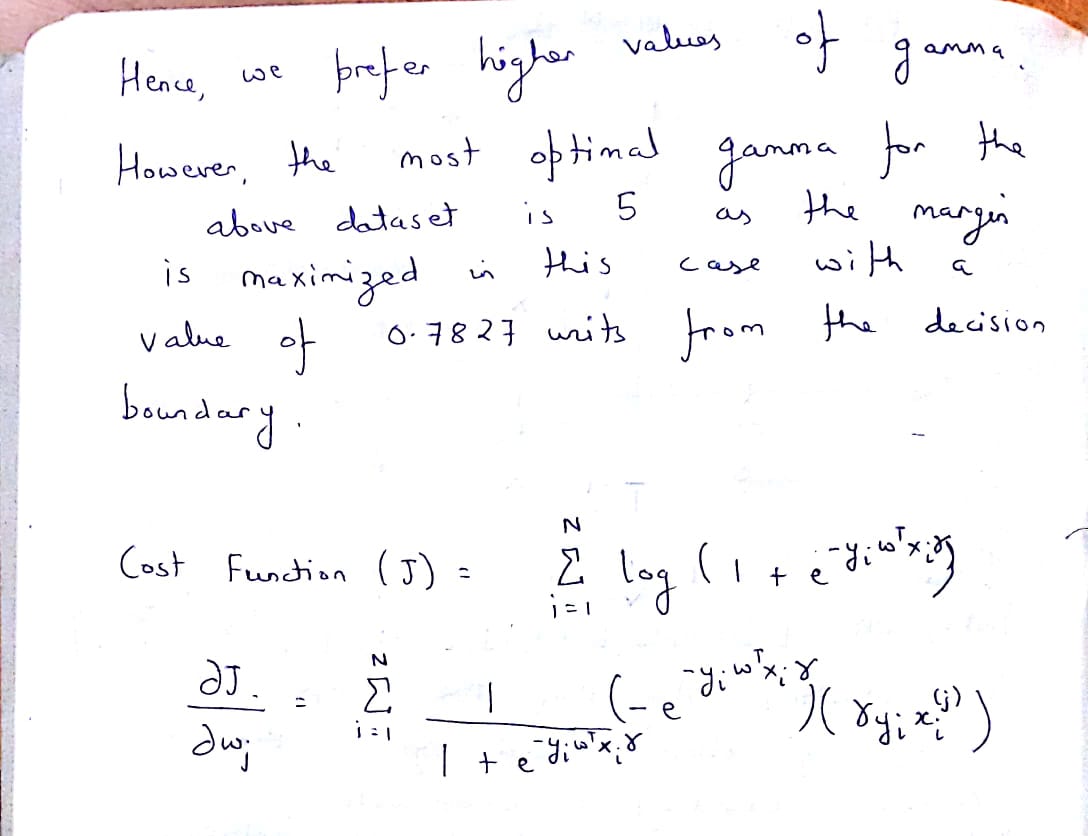 Hence, we prefer higher values of gamma.
However, the most optimal gamma for the
above dataset is 5 as the margin
is maximized in this case with a
value of 0.7827 units from the decision
boundary.
Cost Function (J) = Σ_{i=1}^{N} log (1 + e^{-y_i w^T x_i γ})
∂J/∂w_j = Σ_{i=1}^{N} 1/(1 + e^{-y_i w^T x_i γ}) (-e^{-y_i w^T x_i γ})(γ y_i x_i^{(j)})